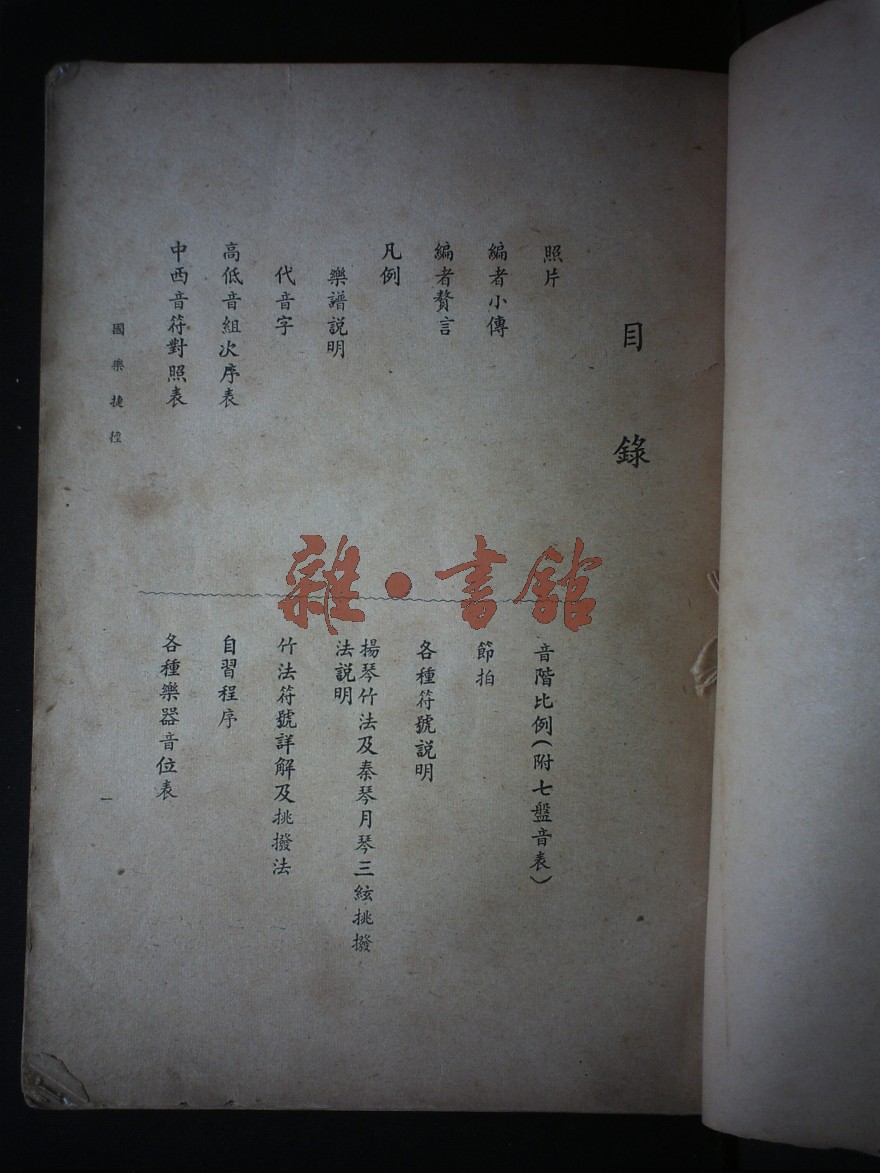 目錄
照片
編者小傳
編者贅言
凡例
樂譜説明
代音字
高低音組次序表
中西音符對照表
音階比例(附七盤音表)
節拍
各種符號説明
揚琴竹法及秦琴月琴三絃挑撥
法説明
竹法符號詳解及挑撥法
自習程序
各種樂器音位表
國樂捷徑
一
雜·書館